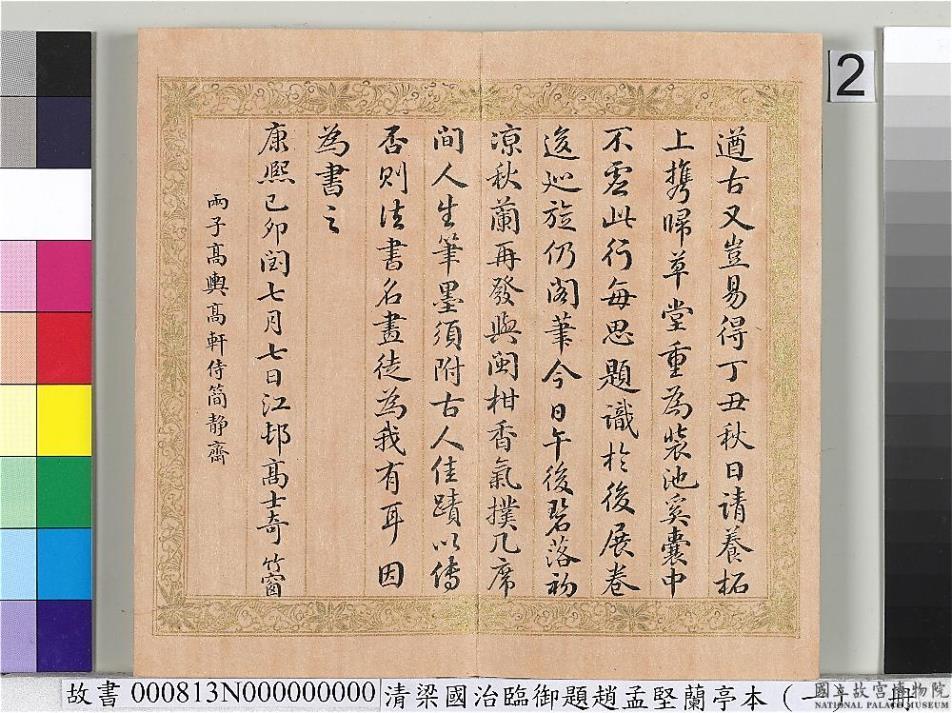 遒古又豈易得丁丑秋日請養柘
上攜歸草堂重為裝池奚囊中
不虛此行每思題識於後展卷
逡巡旋仍閣筆今日午後碧落初
涼秋蘭再發與閩柑香氣撲几席
間人生筆墨須附古人佳蹟以傳
否則法書名畫徒為我有耳因
為書之
康熙己卯閏七月七日江邨高士奇 竹窗
兩子高輿高軒侍簡靜齋
2
故書 000813N000000000 清梁國治臨御題趙孟堅蘭亭本（一）冊
國立故宮博物院
NATIONAL PALACE MUSEUM